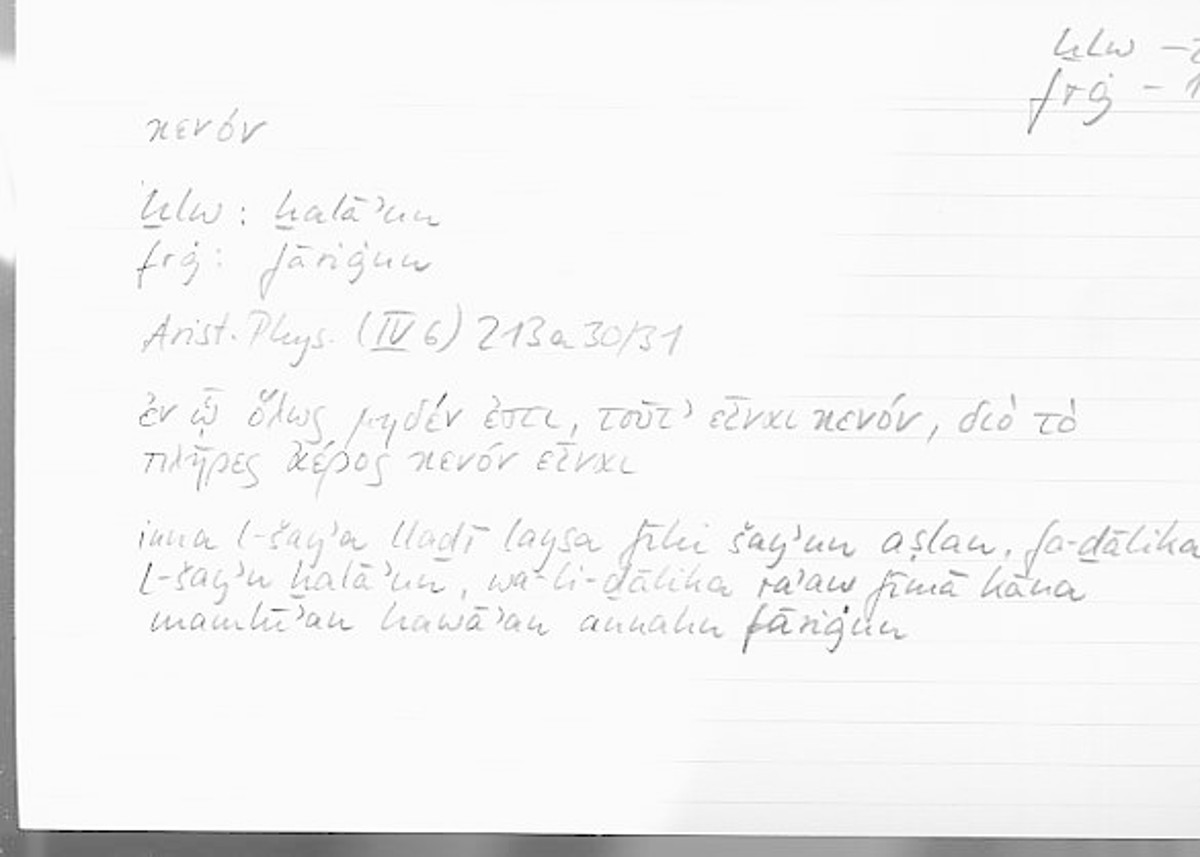 ḫlw –
frġ – 1
κενόν
ḫlw : ḫalāʾun
frġ : fāriġun
Arist. Phys. (IV 6) 213a30/31
ἐν ᾧ ὅλως μηδέν ἐστι, τοῦτ᾽ εἶναι κενόν, διὸ τὸ
πλῆρες ἀέρος κενὸν εἶναι
inna l-šayʾa lladī laysa fīhi šayʾun aṣlan, fa-ḏālika
l-šayʾu ḫalāʾun, wa-li-ḏālika raʾaw fīmā kāna
mamlūʾan hawāʾan annahu fāriġun